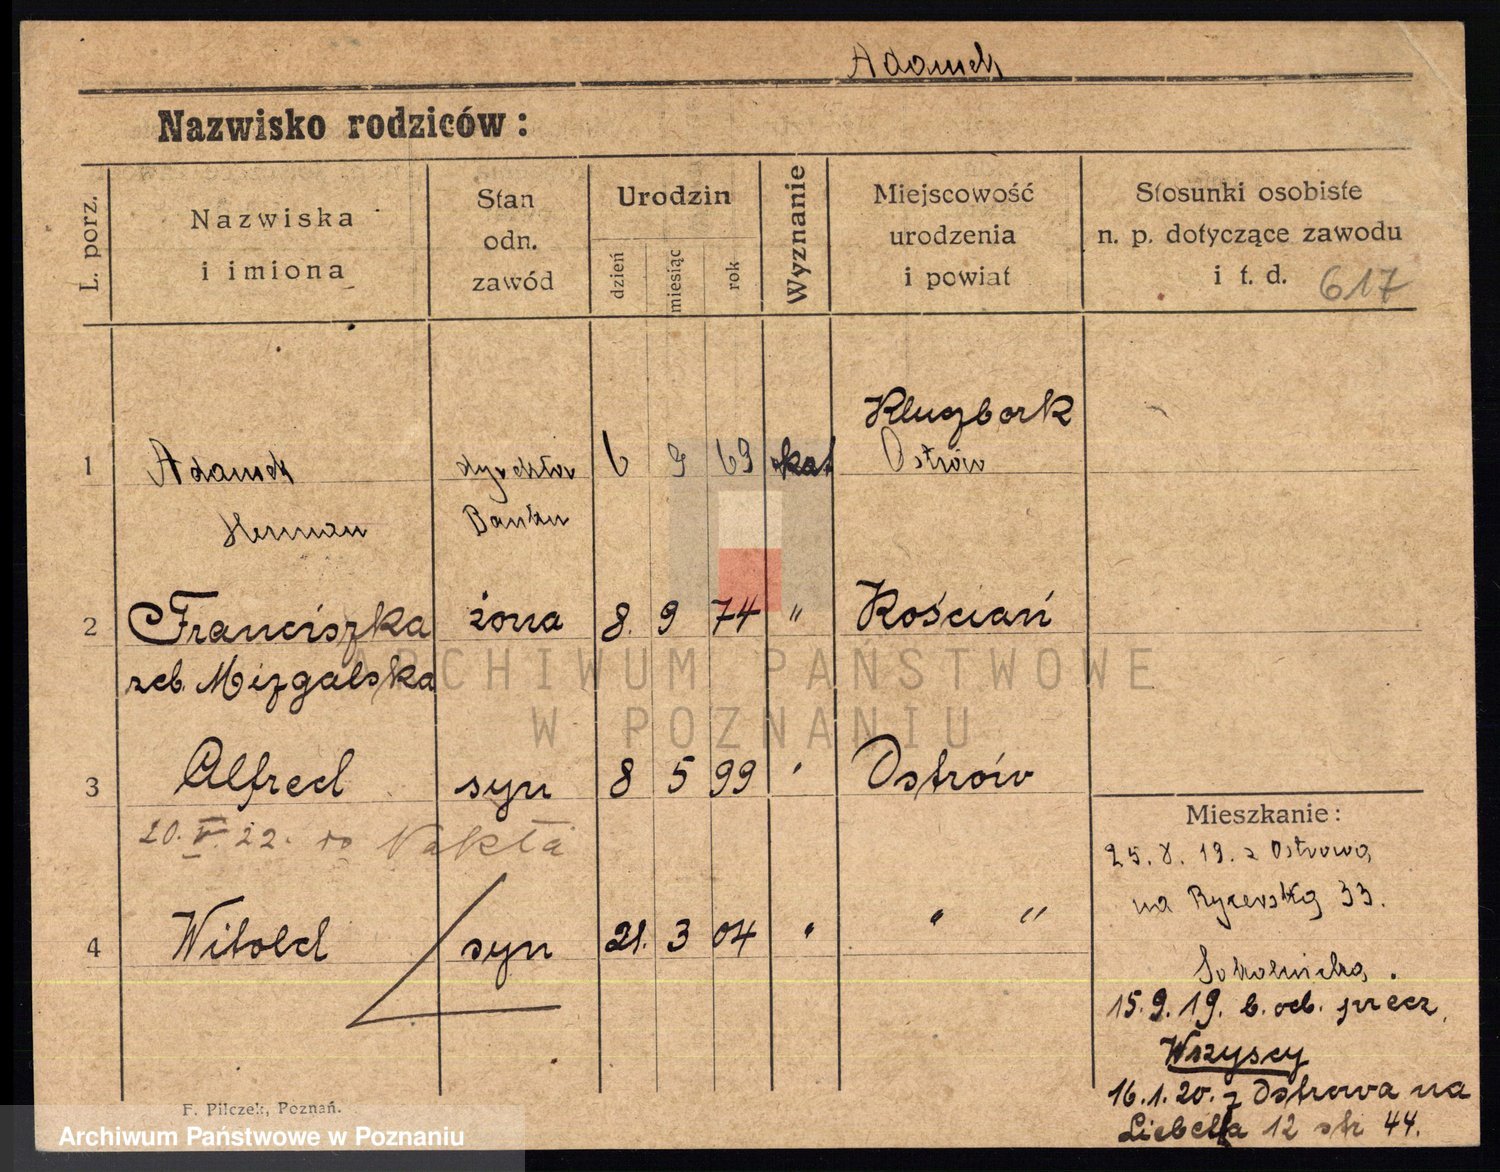 Adamek
Nazwisko rodziców:
L. porz.
Nazwiska
i imiona
Stan
odn.
zawód
Urodzin
dzień
miesiąc
rok
Wyznanie
Miejscowość
urodzenia
i powiat
Stosunki osobiste
n. p. dotyczące zawodu
i t. d. 617
Kluczbork
1 Adamek dyrektor 6 9 69 kat Ostrów
Herman Banku
2 Franciszka żona 8. 9 74 " Kościań
zeb. Mizgalska
ARCHIWUM PAŃSTWOWE
W POZNANIU
3 Alfred syn 8 5 99 " Ostrów
20. V. 22. do Nakła
4 Witold syn 21. 3 04 " " "
Mieszkanie:
25. 8. 19. z Ostrowa
na 33.
15. 9. 19. b. od. precz.
Wszyscy
16. 1. 20. z Ostrowa na
Liebelta 12 str 44.
F. Pilczek, Poznań.
Archiwum Państwowe w Poznaniu